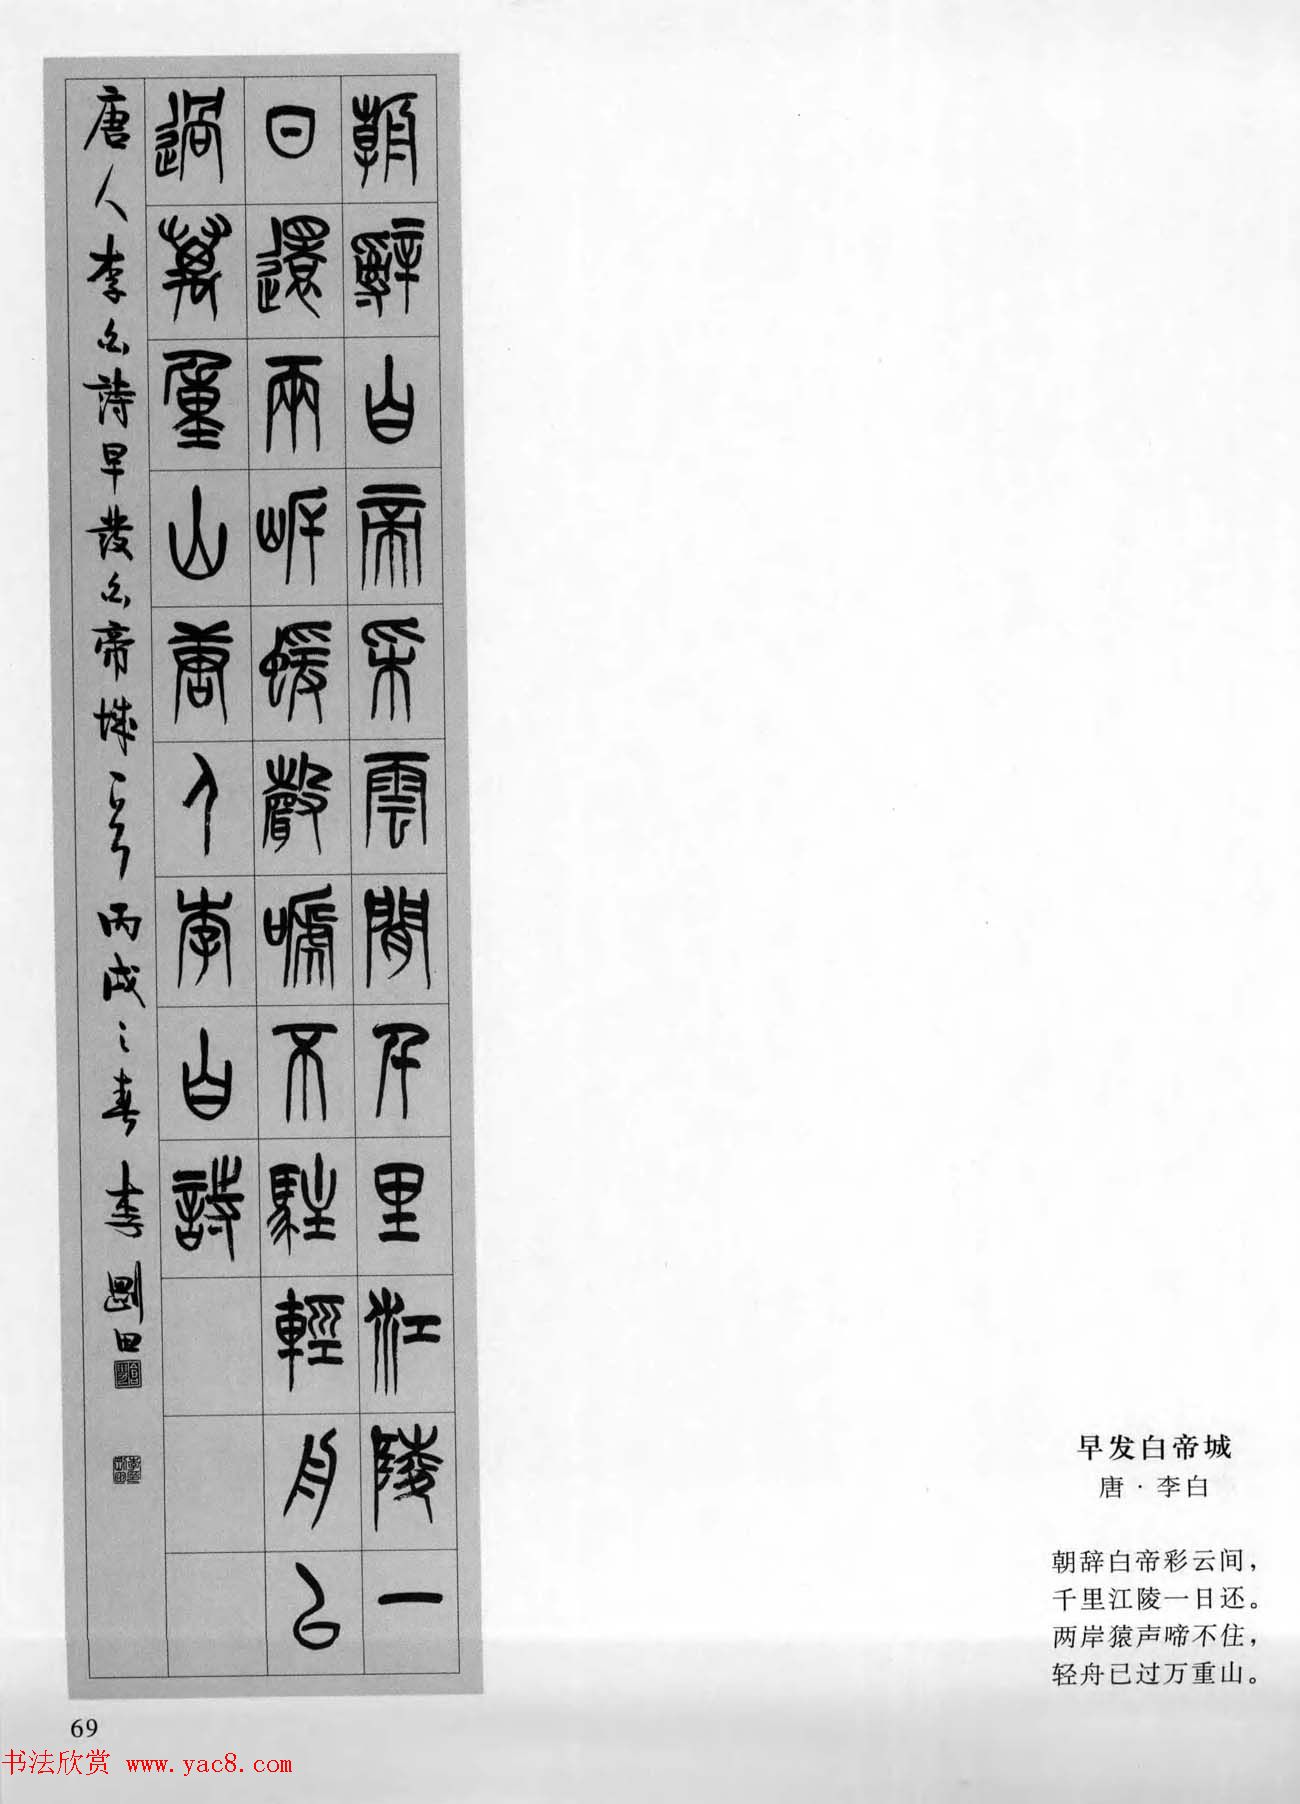 朝辭白帝采雲間千里江陵一
日還兩岸蝯聲嗁不駐輕舟已
過萬重山唐人李白詩
唐人李白詩早發白帝城一首丙戌之春李剛田
早发白帝城
唐·李白
朝辞白帝彩云间，
千里江陵一日还。
两岸猿声啼不住，
轻舟已过万重山。
69
书法欣赏 www.yac8.com